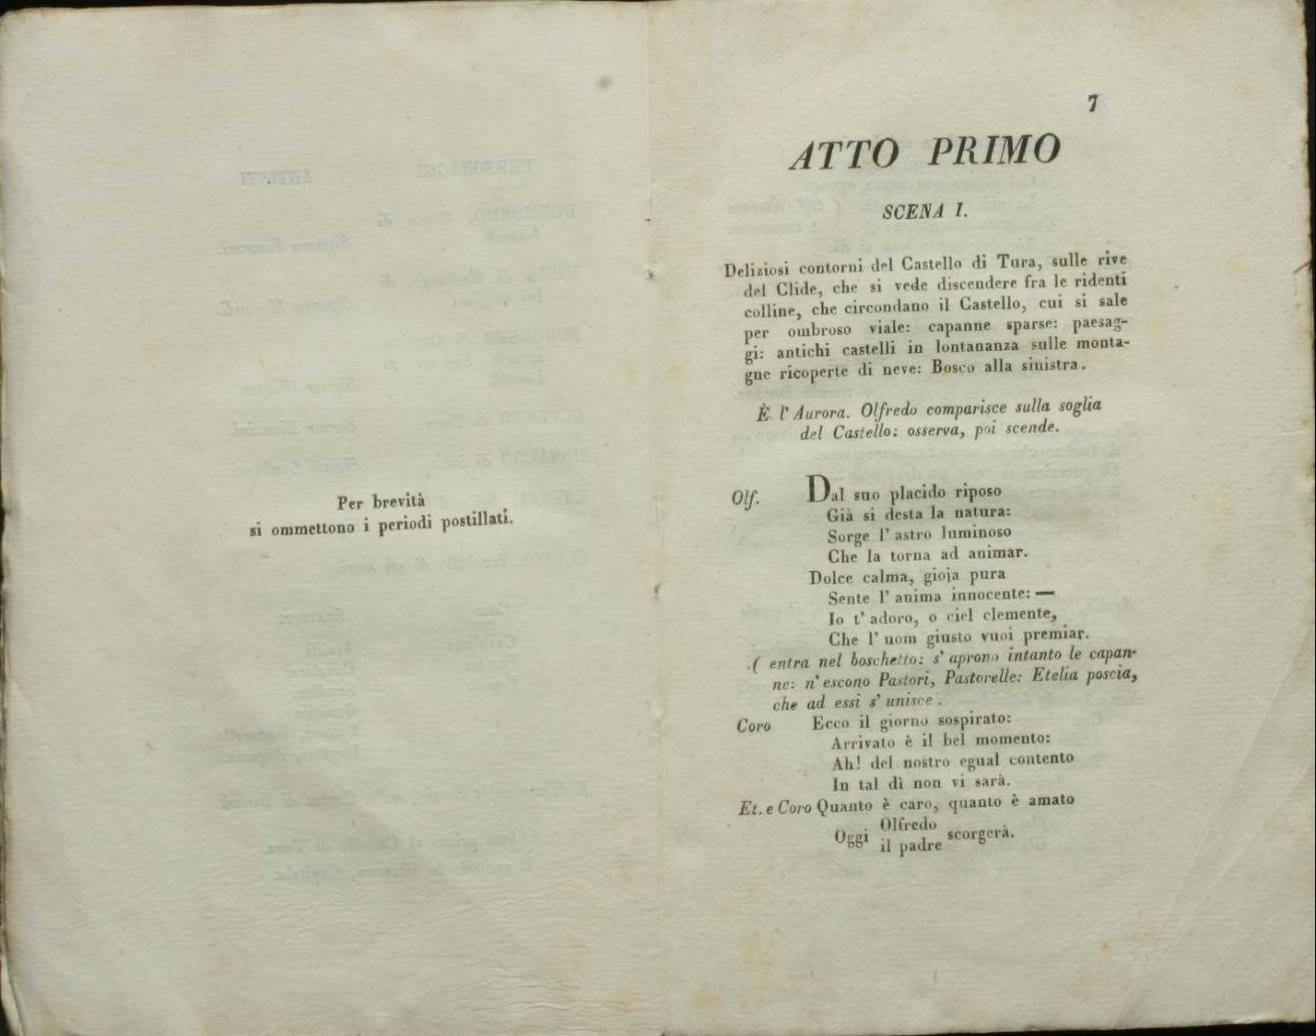 Per brevità
si ommettono i periodi postillati.
7
ATTO PRIMO
SCENA I.
Deliziosi contorni del Castello di Tura, sulle rive
del Clide, che si vede discendere fra le ridenti
colline, che circondano il Castello, cui si sale
per ombroso viale: capanne sparse: paesag-
gi: antichi castelli in lontananza sulle monta-
gne ricoperte di neve: Bosco alla sinistra.
È l'Aurora. Olfredo comparisce sulla soglia
del Castello: osserva, poi scende.
Olf. Dal suo placido riposo
Già si desta la natura:
Sorge l'astro luminoso
Che la torna ad animar.
Dolce calma, gioja pura
Sente l'anima innocente: —
Io t'adoro, o ciel clemente,
Che l'uom giusto vuoi premiar.
( entra nel boschetto: s'aprono intanto le capan-
ne: n'escono Pastori, Pastorelle: Etelia poscia,
che ad essi s'unisce.
Coro Ecco il giorno sospirato:
Arrivato è il bel momento:
Ah! del nostro egual contento
In tal dì non vi sarà.
Et. e Coro Quanto è caro, quanto è amato
Oggi Olfredo scorgerà.
il padre